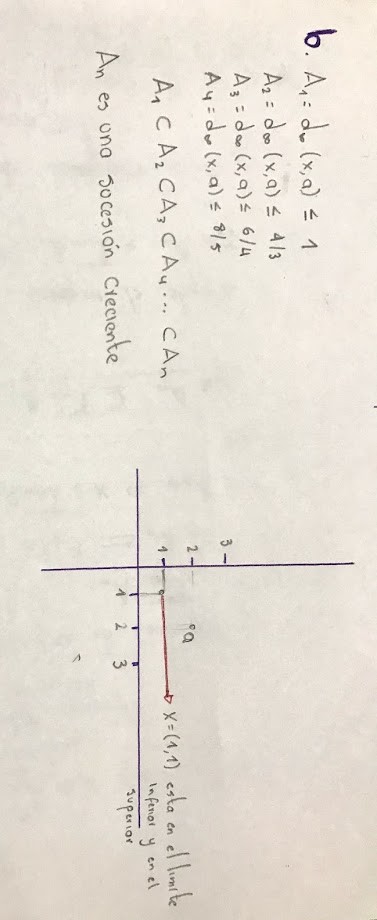 b. A₁ = d∞ (x,a) ≤ 1
A₂ = d∞ (x,a) ≤ 4/3
A₃ = d∞ (x,a) ≤ 6/4
A₄ = d∞ (x,a) ≤ 8/5
A₁ ⊂ A₂ ⊂ A₃ ⊂ A₄ ... ⊂ An
An es una sucesión creciente
3
2
a
1
x=(1,1) esta en el limite
inferior y en el
superior
1 2 3